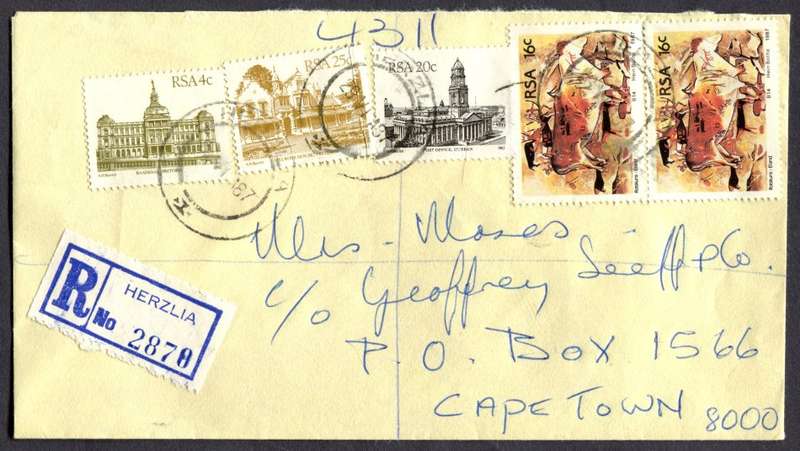 4311
RSA 4c
RSA 25c
RSA 20c
RSA 16c
RSA 16c
1987
POST OFFICE, DURBAN
Mrs - Moses
c/o Geoffrey Seeff & Co.
P.O. BOX 1566
CAPE TOWN 8000
R HERZLIA
No 2870